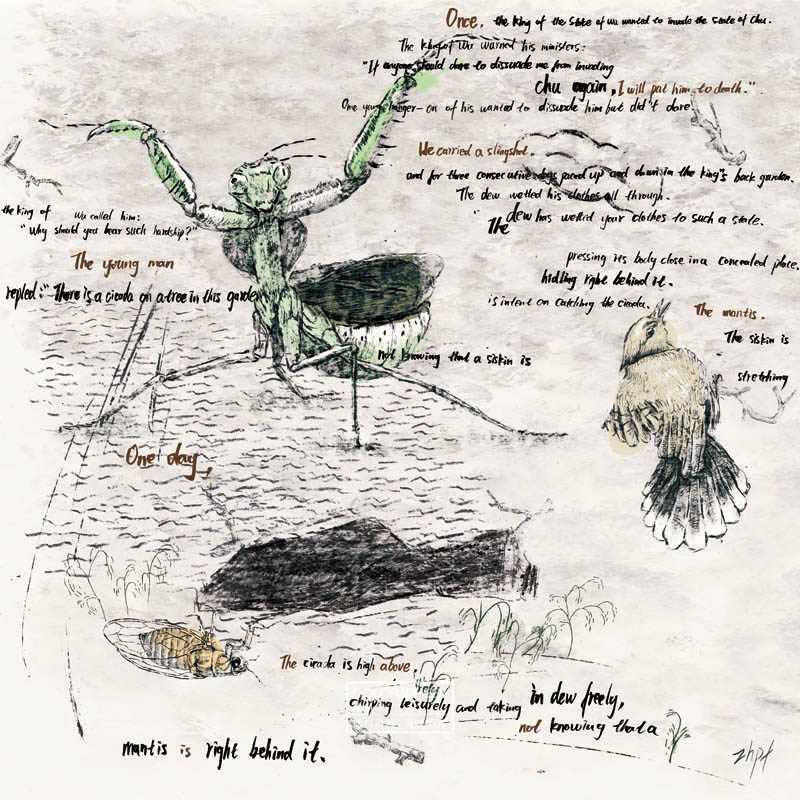 Once, the king of the state of wu wanted to invade the state of chu.
The king of wu warned his ministers:
"If anyone should dare to dissuade me from invading
chu again, I will put him to death."
One young hanger-on of his wanted to dissuade him but didn't dare.
He carried a slingshot.
and for three consecutive days paced up and down in the king's back garden.
The dew wetted his clothes all through.
"The dew has wetted your clothes to such a state.
the king of wu called him:
"Why should you bear such hardship?"
The young man
replied: "There is a cicada on a tree in this garden
pressing its body close in a concealed place,
hidling right behind it.
is intent on catching the cicada.
The mantis.
The siskin is
not knowing that a siskin is
stretching
One day,
The cicada is high above,
rely
chirping leisurely and taking in dew freely,
not knowing that a
mantis is right behind it.
zhpt